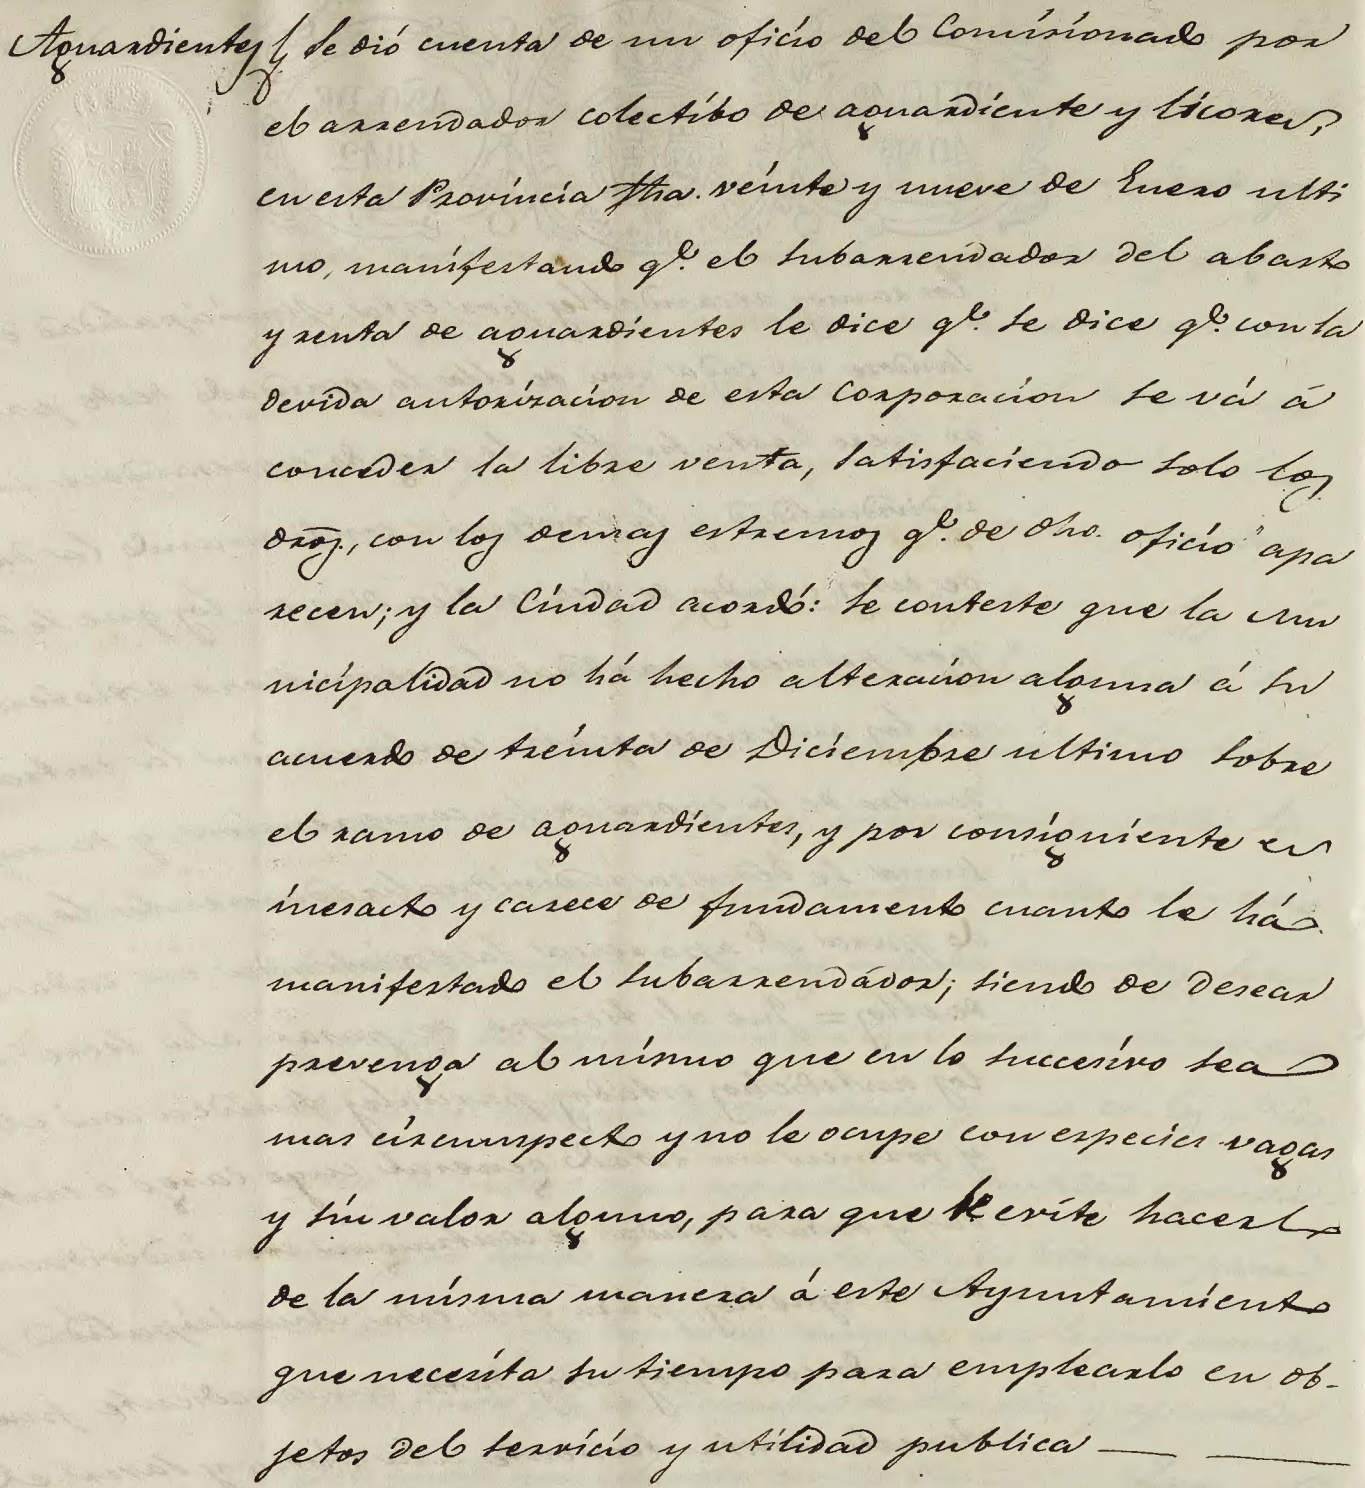 Aguardientes Se dió cuenta de un oficio del Comisionado por
el arrendador colectibo de aguardiente y licores,
en esta Provincia fha. veinte y nueve de Enero ulti
mo, manifestando qe. el subarrendador del abasto
y renta de aguardientes le dice qe. se dice qe. con la
devida autorizacion de esta Corporacion se vá á
conceder la libre venta, satisfaciendo solo los
dros., con los demas estremos qe. de dho. oficio apa
recen; y la Ciudad acordó: se conteste que la mu
nicipalidad no há hecho alteracion alguna á su
acuerdo de treinta de Diciembre ultimo sobre
el ramo de aguardientes, y por consiguiente es
inesacto y carece de fundamento cuanto le há
manifestado el subarrendador; siendo de desear
prevenga al mismo que en lo succesivo sea
mas circunspecto y no le ocupe con especies vagas
y sin valor alguno, para que se evite hacerlo
de la misma manera á este Ayuntamiento
que necesita su tiempo para emplearlo en ob-
jetos del servicio y utilidad publica